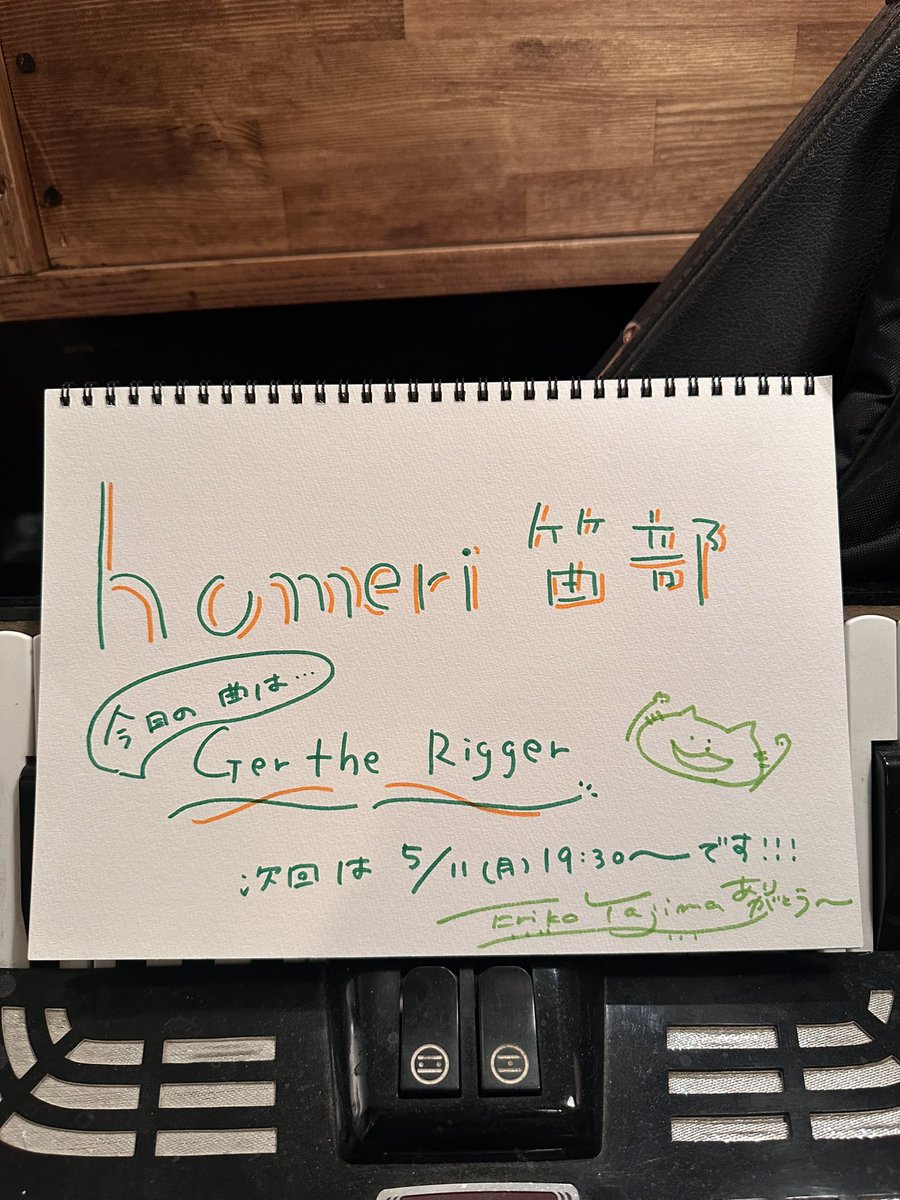 homeri 笛部
今日の曲は…
Ger the Rigger
次回は 5/11(月)19:30〜です!!!
Eriko Tajima ありがとう〜